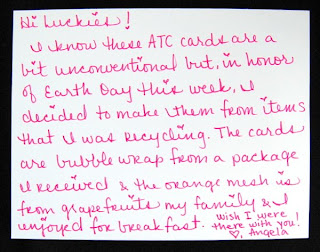 Hi Luckies!
I know these ATC cards are a
bit unconventional but, in honor
of Earth Day this week, I
decided to make them from items
that I was recycling. The cards
are bubble wrap from a package
I received & the orange mesh is
from grapefruits my family & I
enjoyed for breakfast. wish I were
there with you!
♡, Angela